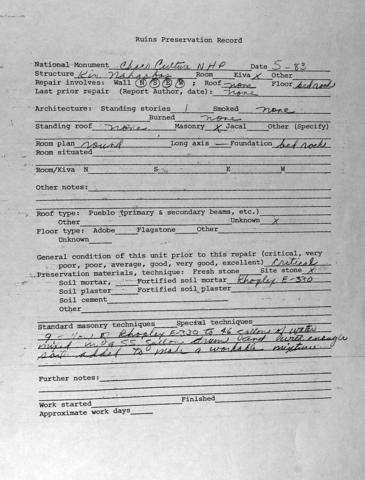 Ruins Preservation Record
National Monument Chaco Culture NHP Date 5-83
Structure Kin Nahasbas Room Kiva X Other
Repair involves: Wall N S E W; Roof none Floor bedrock
Last prior repair (Report Author, date): none
Architecture: Standing stories 1 Smoked none
Burned none
Standing roof none Masonry X Jacal Other (Specify)
Room plan round Long axis — Foundation bedrock
Room situated
Room/Kiva N S E W
Other notes:
Roof type: Pueblo (primary & secondary beams, etc.)
Other Unknown X
Floor type: Adobe Flagstone Other
Unknown
General condition of this unit prior to this repair (critical, very
poor, poor, average, good, very good, excellent) Critical
Preservation materials, technique: Fresh stone Site stone X
Soil mortar, Fortified soil mortar Rhoplex E-330
Soil plaster Fortified soil plaster
Soil cement
Other
Standard masonry techniques Special techniques
9 Rhoplex E-330 to 46 gallons of water
mixed in a 55 gallon drum and just enough
soil added to make a workable mixture
Further notes:
Work started Finished
Approximate work days